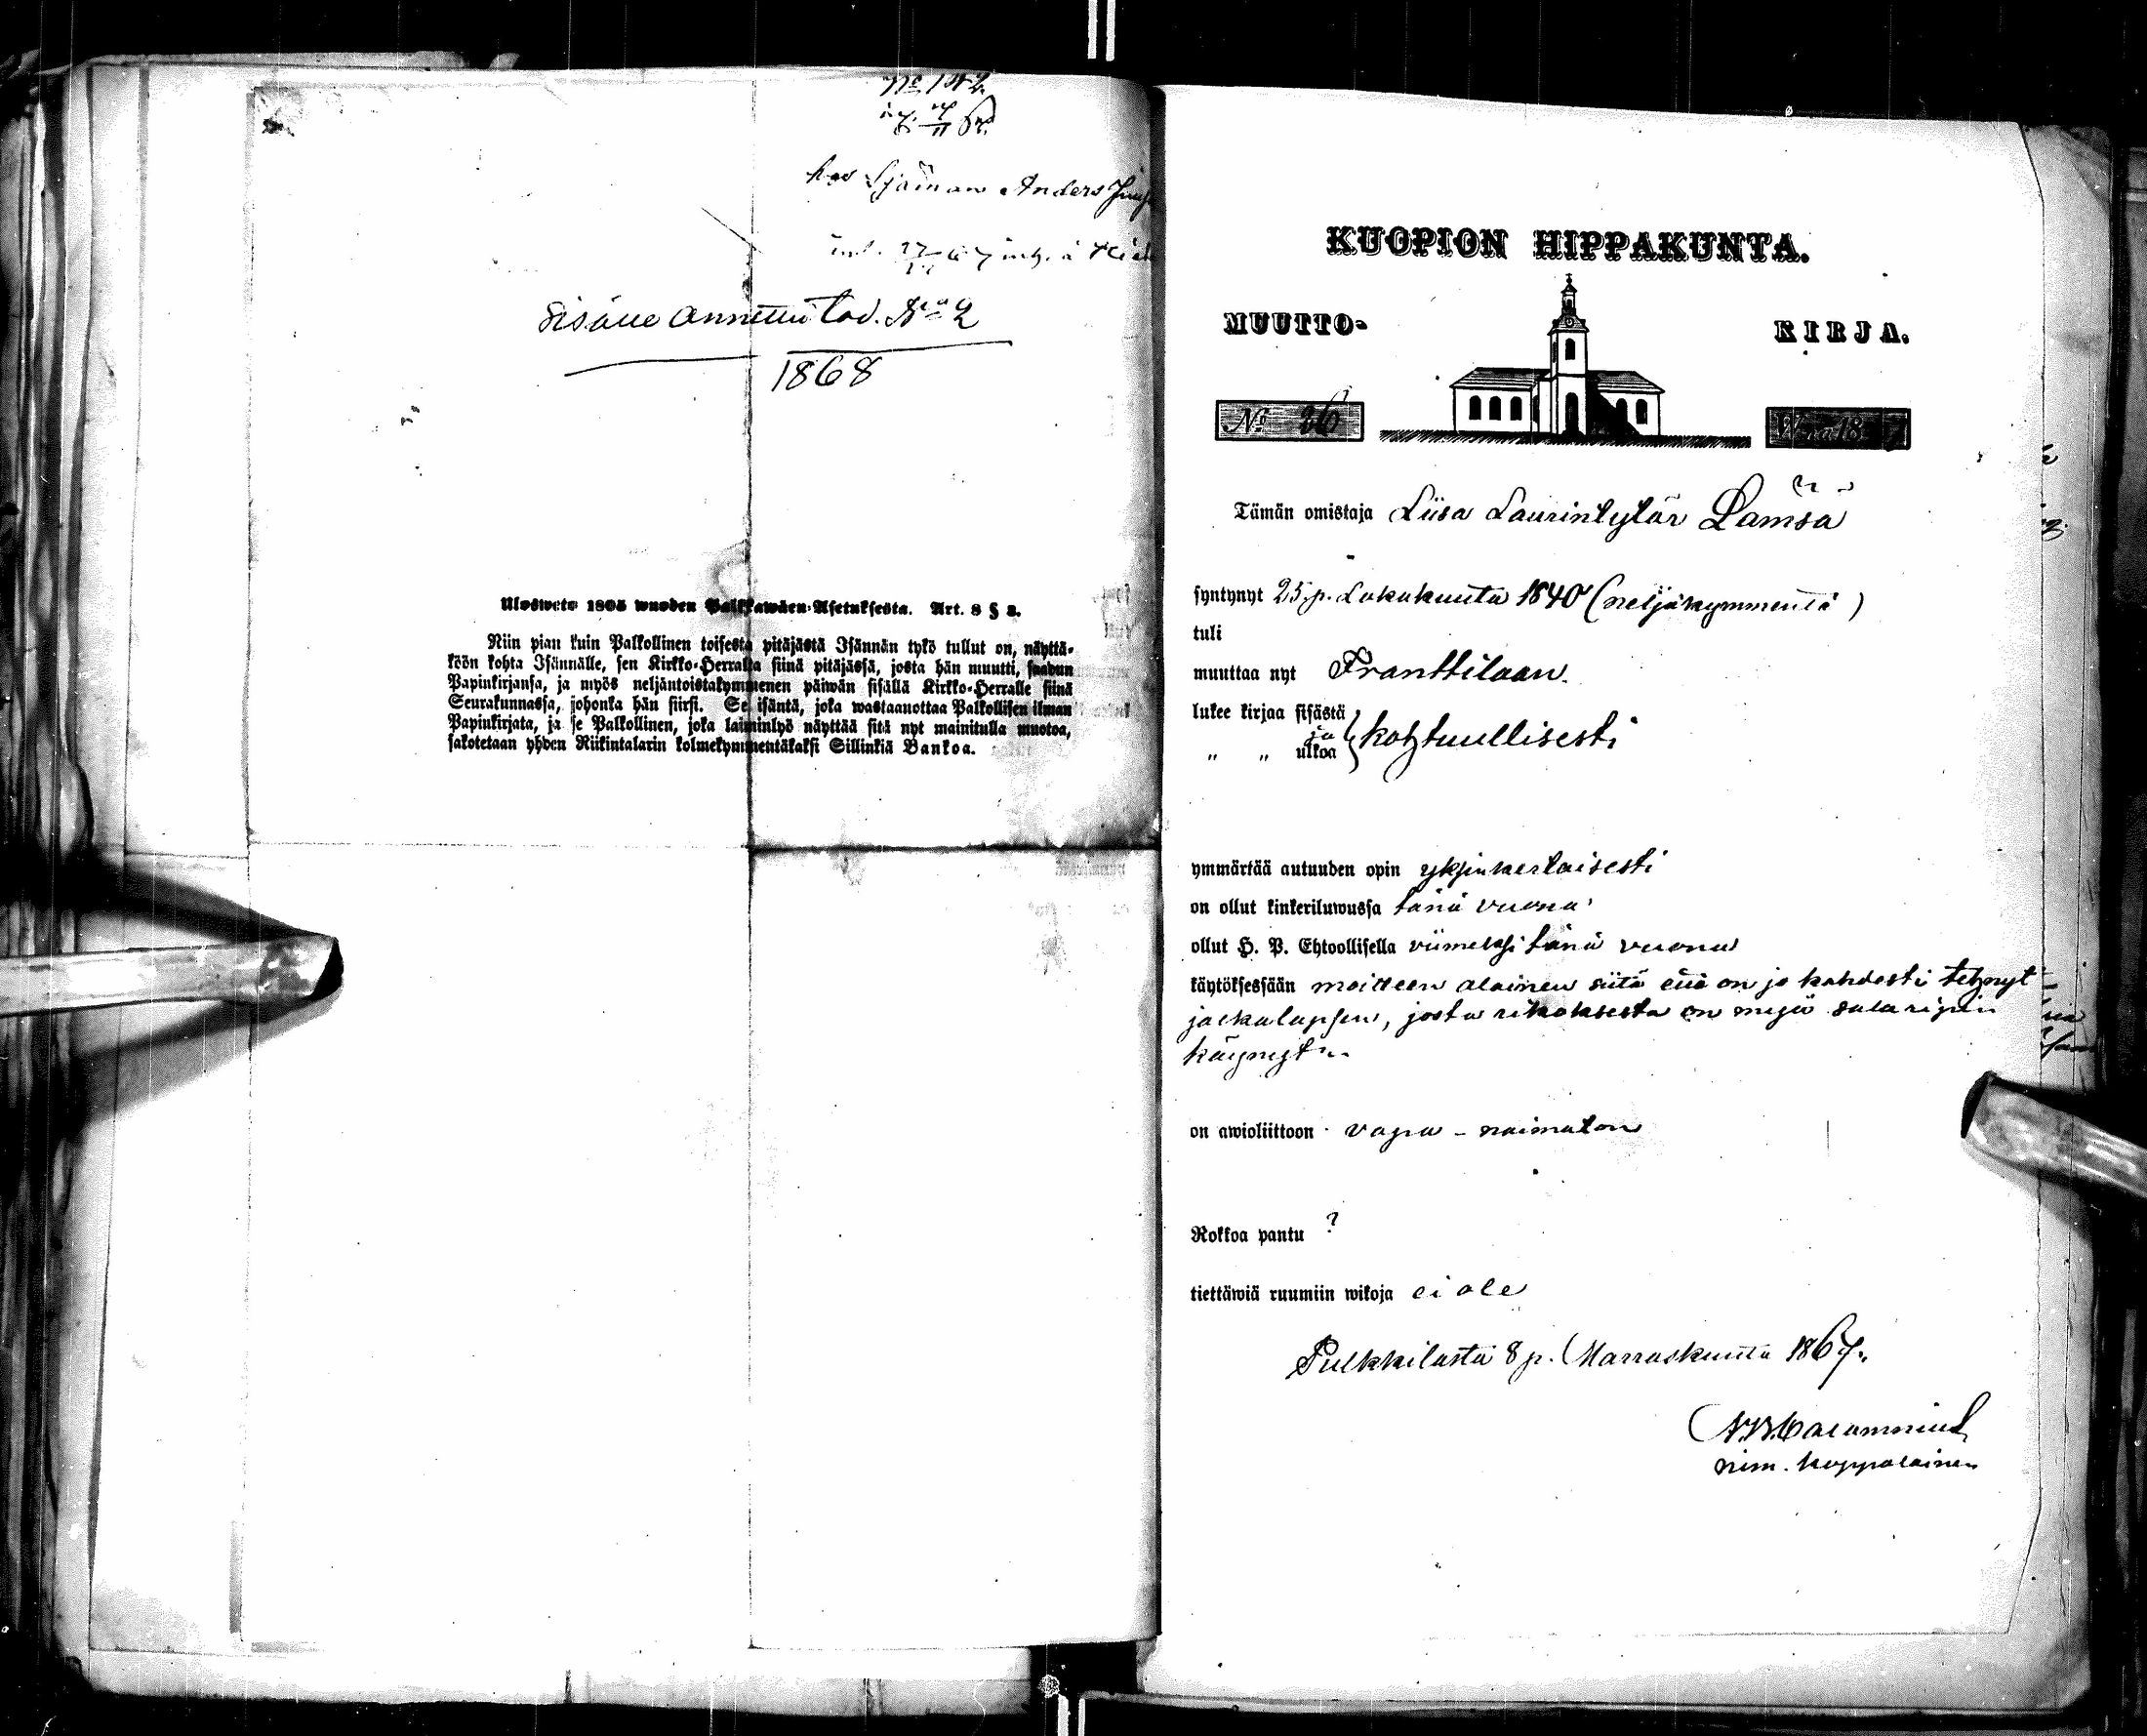 No 142.
hos Anders
Sisälle annettu tod. No 2
1868
Ulosweto 1805 wuoden Palkkawäen-Asetuksesta. Art. 8 § 2.
Niin pian kuin Palkollinen toisesta pitäjästä Isännän tykö tullut on, näyttä-
köön kohta Isännälle, sen Kirkko-Herralta siinä pitäjässä, josta hän muutti, saadun
Papinkirjansa, ja myös neljäntoistakymmenen päiwän sisällä Kirkko-Herralle siinä
Seurakunnassa, johonka hän siirsi. Se isäntä, joka wastaanottaa Palkollisen ilman
Papinkirjata, ja se Palkollinen, joka laiminlyö näyttää sitä nyt mainitulla muotoa,
sakotetaan yhden Riikintalarin kolmekymmentäkaksi Sillinkiä Bankoa.
KUOPION HIPPAKUNTA.
MUUTTO- KIRJA.
No 26 W:na 18 7
Tämän omistaja Liisa Laurintytär Lämsä
syntynyt 25 p. Lokakuuta 1840 (neljäkymmentä)
tuli
muuttaa nyt Franttilaan.
lukee kirjaa sisästä
ja kohtuullisesti
„ „ ulkoa
ymmärtää autuuden opin yksinkertaisesti
on ollut kinkeriluwussa tänä vuona
ollut H. P. Ehtoollisella viimeksi tänä vuona
käytöksessään moitteen alainen siitä että on jo kahdesti tehnyt
jalkalapsen, josta rikoksesta on myös salaripin
käynyt.
on awioliittoon vapa - naimaton
Rokkoa pantu ?
tiettäwiä ruumiin wikoja ei ole
Pulkkilasta 8 p. Marraskuuta 1867.
nim. kappalainen